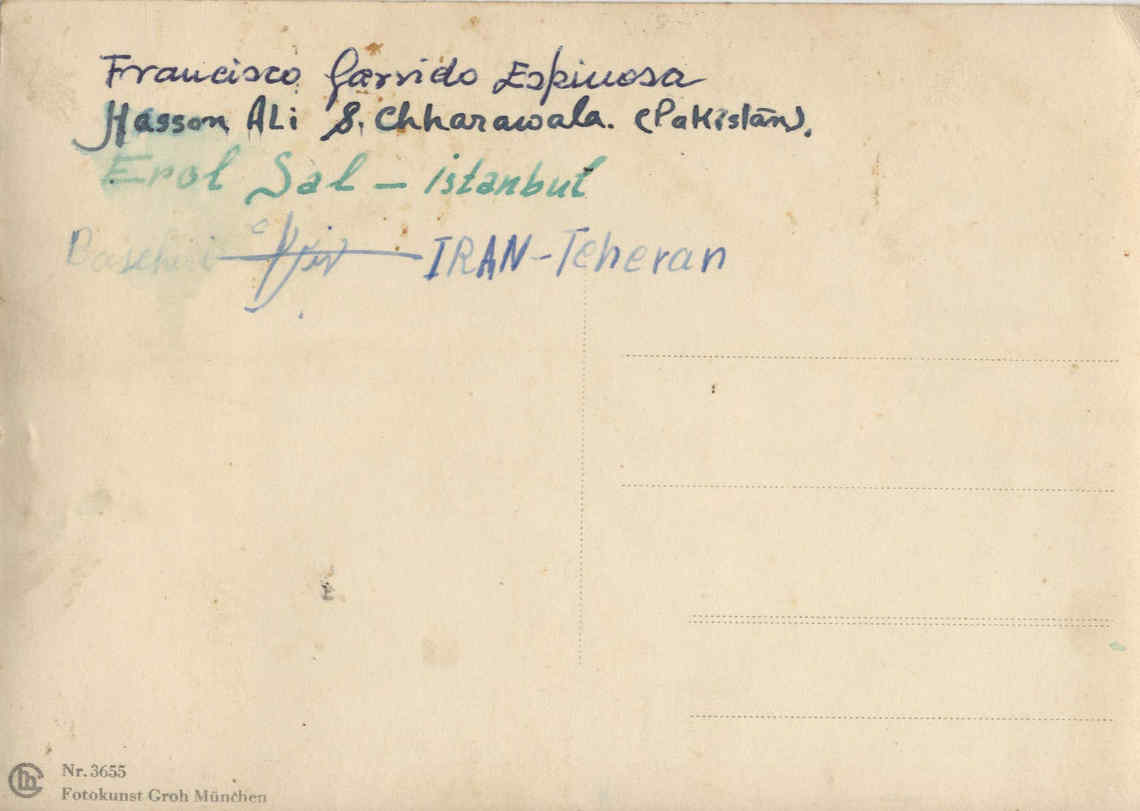 Francisco Garrido Espinosa
Hasson ALi S. Chharawala. (Pakistān).
Erol Sal – istanbul
IRAN - Teheran
Nr. 3655
Fotokunst Groh München